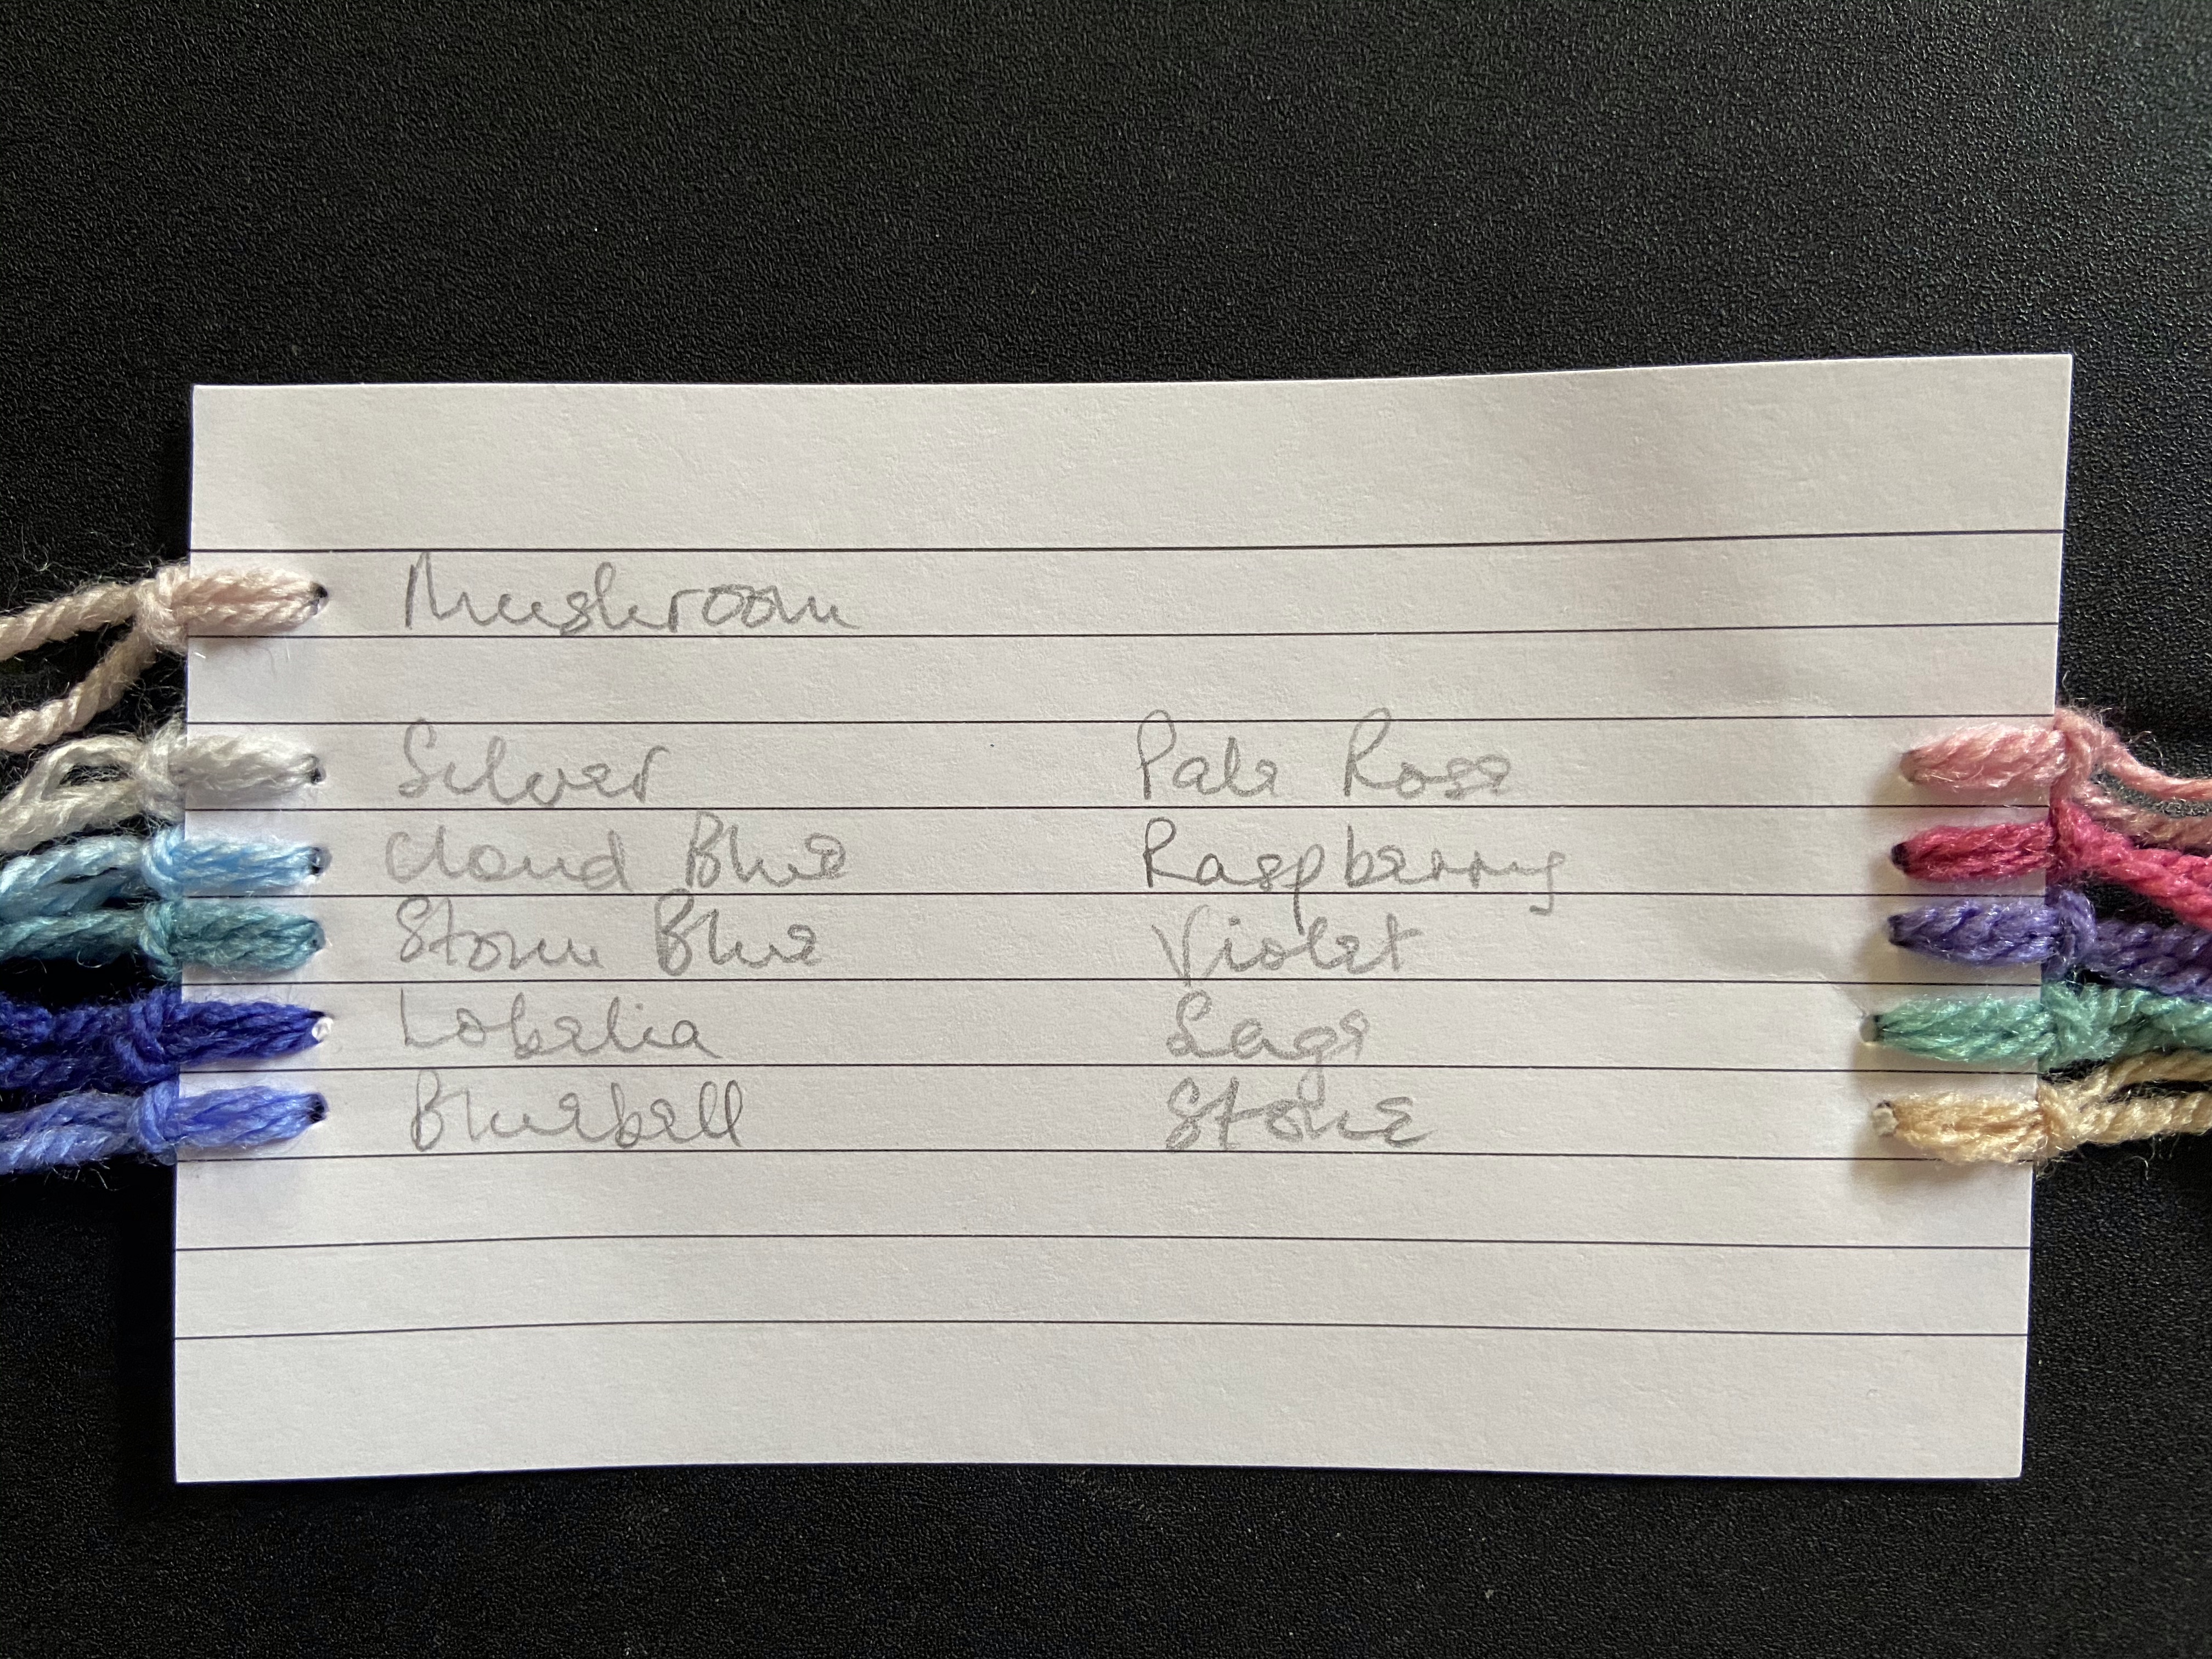 Mushroom
Silver
Cloud Blue
Storm Blue
Lobelia
Bluebell
Pale Rose
Raspberry
Violet
Sage
Stone